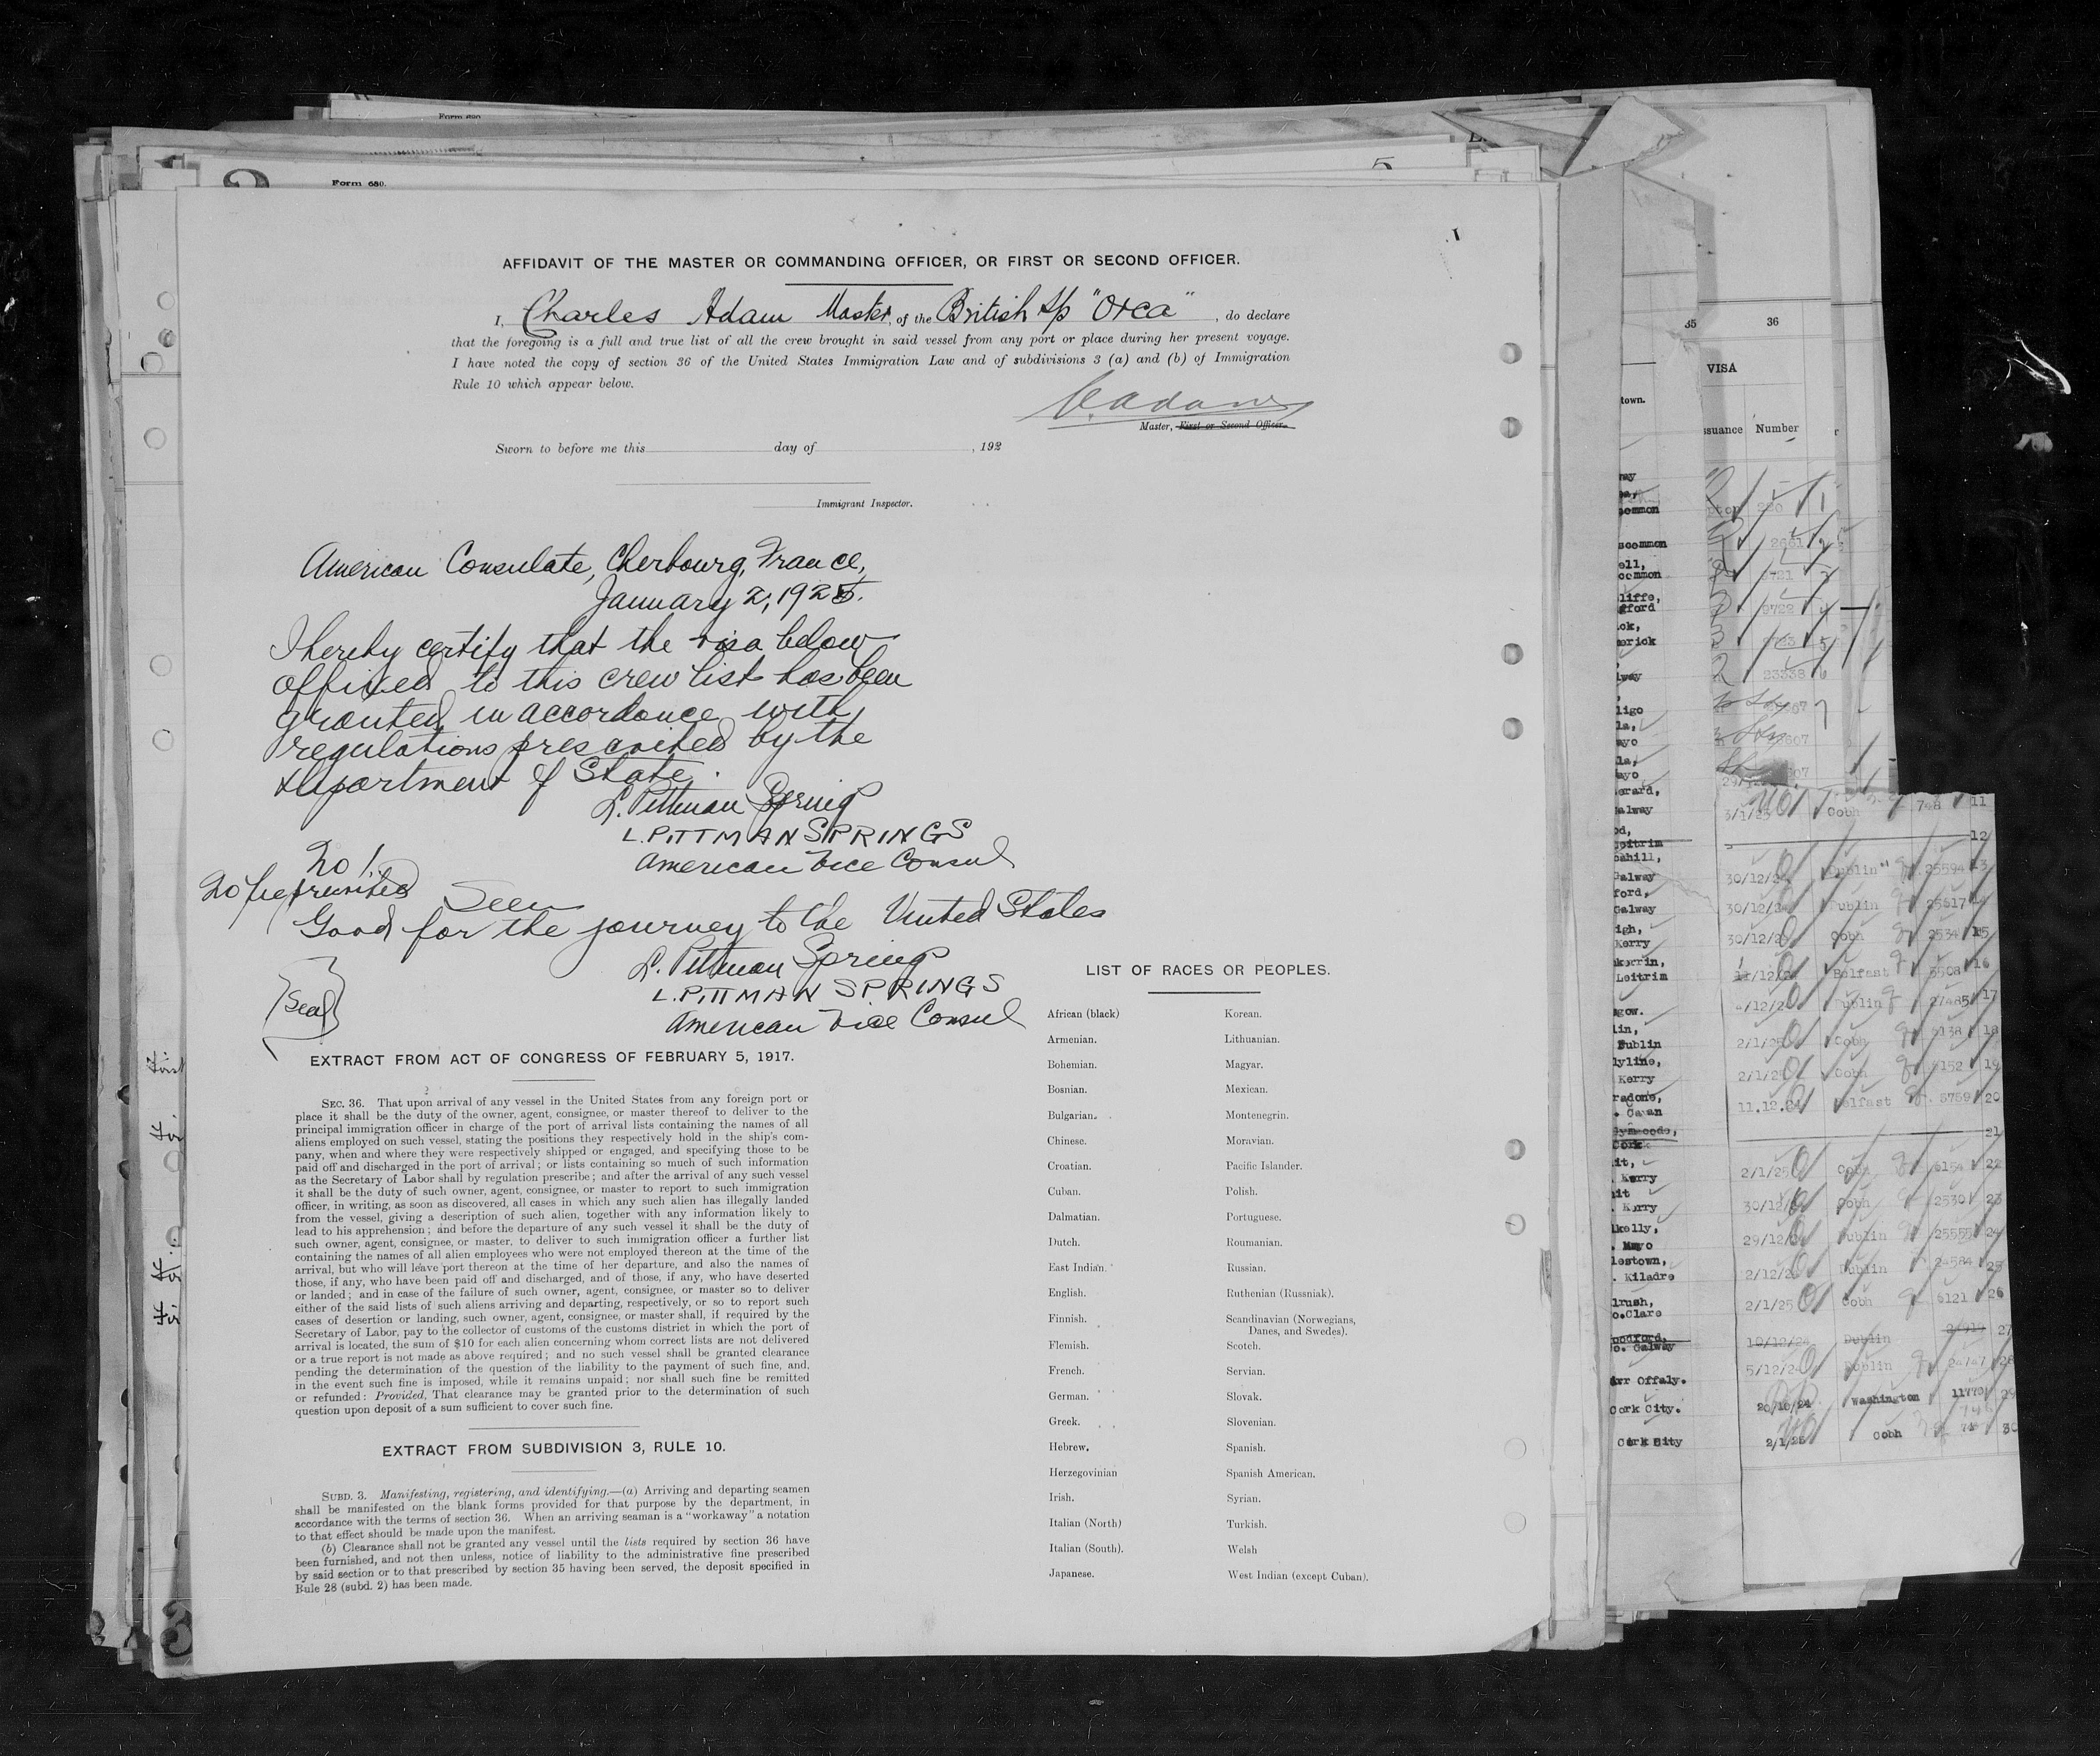 Form 680.
Form 680.
5
1
AFFIDAVIT OF THE MASTER OR COMMANDING OFFICER, OR FIRST OR SECOND OFFICER.
I, Charles Adam Master, of the British s/s "Orca", do declare
that the foregoing is a full and true list of all the crew brought in said vessel from any port or place during her present voyage.
I have noted the copy of section 36 of the United States Immigration Law and of subdivisions 3 (a) and (b) of Immigration
Rule 10 which appear below.
C. Adam
Master, First or Second Officer.
Sworn to before me this day of , 192
Immigrant Inspector.
American Consulate, Cherbourg, France,
January 2, 1925.
I hereby certify that the visa below
affixed to this crew list has been
granted in accordance with
regulations prescribed by the
Department of State.
L. Pittman Springs
L. PITTMAN SPRINGS
American Vice Consul
No 1.
No fee prescribed
Seen
Good for the journey to the United States
L. Pittman Springs
L. PITTMAN SPRINGS
American Vice Consul
(Seal)
EXTRACT FROM ACT OF CONGRESS OF FEBRUARY 5, 1917.
SEC. 36. That upon arrival of any vessel in the United States from any foreign port or
place it shall be the duty of the owner, agent, consignee, or master thereof to deliver to the
principal immigration officer in charge of the port of arrival lists containing the names of all
aliens employed on such vessel, stating the positions they respectively hold in the ship's com-
pany, when and where they were respectively shipped or engaged, and specifying those to be
paid off and discharged in the port of arrival; or lists containing so much of such information
as the Secretary of Labor shall by regulation prescribe; and after the arrival of any such vessel
it shall be the duty of such owner, agent, consignee, or master to report to such immigration
officer, in writing, as soon as discovered, all cases in which any such alien has illegally landed
from the vessel, giving a description of such alien, together with any information likely to
lead to his apprehension; and before the departure of any such vessel it shall be the duty of
such owner, agent, consignee, or master, to deliver to such immigration officer a further list
containing the names of all alien employees who were not employed thereon at the time of the
arrival, but who will leave port thereon at the time of her departure, and also the names of
those, if any, who have been paid off and discharged, and of those, if any, who have deserted
or landed; and in case of the failure of such owner, agent, consignee, or master so to deliver
either of the said lists of such aliens arriving and departing, respectively, or so to report such
cases of desertion or landing, such owner, agent, consignee, or master shall, if required by the
Secretary of Labor, pay to the collector of customs of the customs district in which the port of
arrival is located, the sum of $10 for each alien concerning whom correct lists are not delivered
or a true report is not made as above required; and no such vessel shall be granted clearance
pending the determination of the question of the liability to the payment of such fine, and,
in the event such fine is imposed, while it remains unpaid; nor shall such fine be remitted
or refunded: Provided, That clearance may be granted prior to the determination of such
question upon deposit of a sum sufficient to cover such fine.
EXTRACT FROM SUBDIVISION 3, RULE 10.
SUBD. 3. Manifesting, registering, and identifying.—(a) Arriving and departing seamen
shall be manifested on the blank forms provided for that purpose by the department, in
accordance with the terms of section 36. When an arriving seaman is a "workaway" a notation
to that effect should be made upon the manifest.
(b) Clearance shall not be granted any vessel until the lists required by section 36 have
been furnished, and not then unless, notice of liability to the administrative fine prescribed
by said section or to that prescribed by section 35 having been served, the deposit specified in
Rule 28 (subd. 2) has been made.
LIST OF RACES OR PEOPLES.
African (black) Korean.
Armenian. Lithuanian.
Bohemian. Magyar.
Bosnian. Mexican.
Bulgarian. Montenegrin.
Chinese. Moravian.
Croatian. Pacific Islander.
Cuban. Polish.
Dalmatian. Portuguese.
Dutch. Roumanian.
East Indian. Russian.
English. Ruthenian (Russniak).
Finnish. Scandinavian (Norwegians,
Danes, and Swedes).
Flemish. Scotch.
French. Servian.
German. Slovak.
Greek. Slovenian.
Hebrew. Spanish.
Herzegovinian Spanish American.
Irish. Syrian.
Italian (North) Turkish.
Italian (South). Welsh
Japanese. West Indian (except Cuban).
35 36
VISA
town.
ssuance Number
common
scommon
ell,
common
liffe,
gford
ok,
erick
23338 6
ligo
la,
ayo
la,
ayo
erard,
alway 3/1/25 Cobh 748 11
12
eitrim
cahill,
Galway 30/12/24 Dublin 25594 13
ford,
Galway 30/12/24 Dublin 25617 14
igh,
Kerry 30/12/24 Cobh 2534 15
Leitrim 11/12/24 Belfast 5508 16
4/12/2 Dublin 27485 17
lin,
Dublin 2/1/25 Cobh 6138 18
lyline,
Kerry 2/1/25 Cobh 6152 19
radone,
. Cavan 11.12.24 Belfast 5759 20
Cork 21
it,
. Kerry 2/1/25 Cobh 6154 22
. Kerry 30/12/ Cobh 2530 23
kelly,
. Mayo 29/12/2 Dublin 25555 24
lestown,
. Kiladre 2/12/2 Dublin 24584 25
lrush,
o.Clare 2/1/25 Cobh 6121 26
oodford,
o. Galway 10/12/24 Dublin 27
Offaly. 5/12/24 Dublin 24747 28
Cork City. 20/10/24 Washington 11770 29
Cork City 2/1/25 Cobh 30